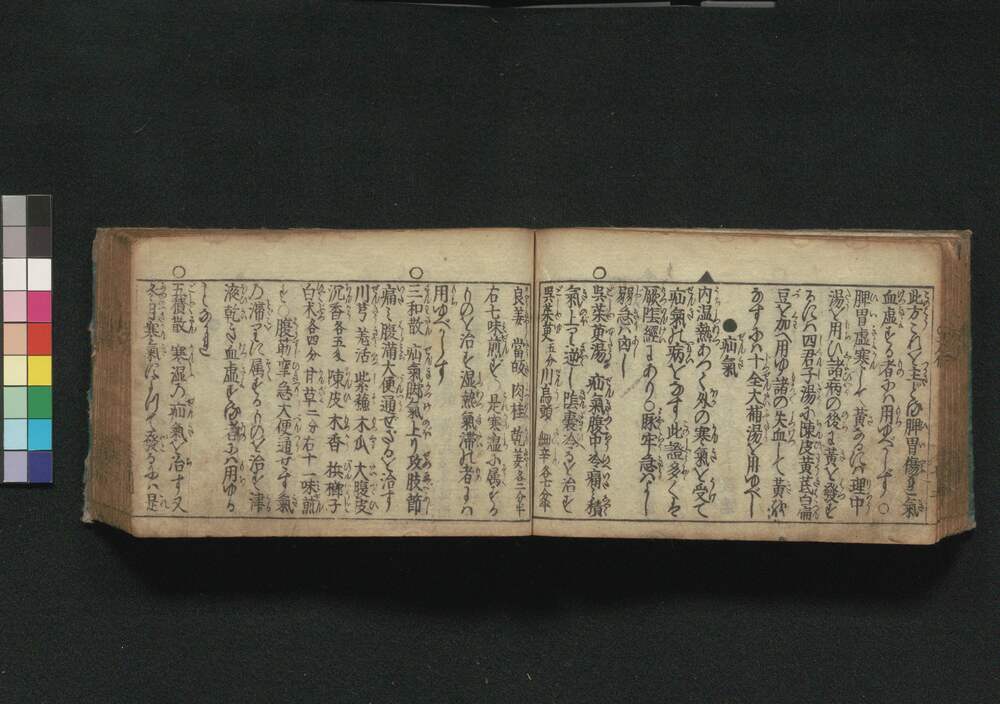 此方これを主どる脾胃傷れ氣
血虚する者には用ゆべからず○
脾胃虚寒して黄なるには理中
湯を用ひ諸病の後に黄を發す
るには四君子湯に陳皮黄芪白扁
豆を加へ用ゆ諸の失血して黄
なすには十全大補湯を用ゆべし
●疝氣
▲内湿熱あつく外の寒氣を受て
疝氣の病をなす此證多くは
厥陰經にあり○脉牢急はよし
弱急は凶し
○呉茱萸湯 疝氣腹中冷積
氣上つて逆し陰嚢冷るを治す
呉茱萸五分川烏頭 細辛各七分半
良姜 當歸 肉桂 乾姜各二分半
右七味煎ず 是寒湿に属する
ものを治す湿熱氣滞る者には
用ゆべからず
○三和散 疝氣脚氣上り攻肢節
痛み腹満大便通ぜざるを治す
川芎 羌活 紫蘓 木瓜 大腹皮
沉香各五分 陳皮 木香 檳榔子
白术各四分 甘草二分右十一味煎
ず○腹筋攣急大便通ぜず氣
の滞りに属するものを治す津
液乾き血虚する者には用ゆる

○五積散 寒湿の疝氣を治す又
冬日寒氣によりて發るには是